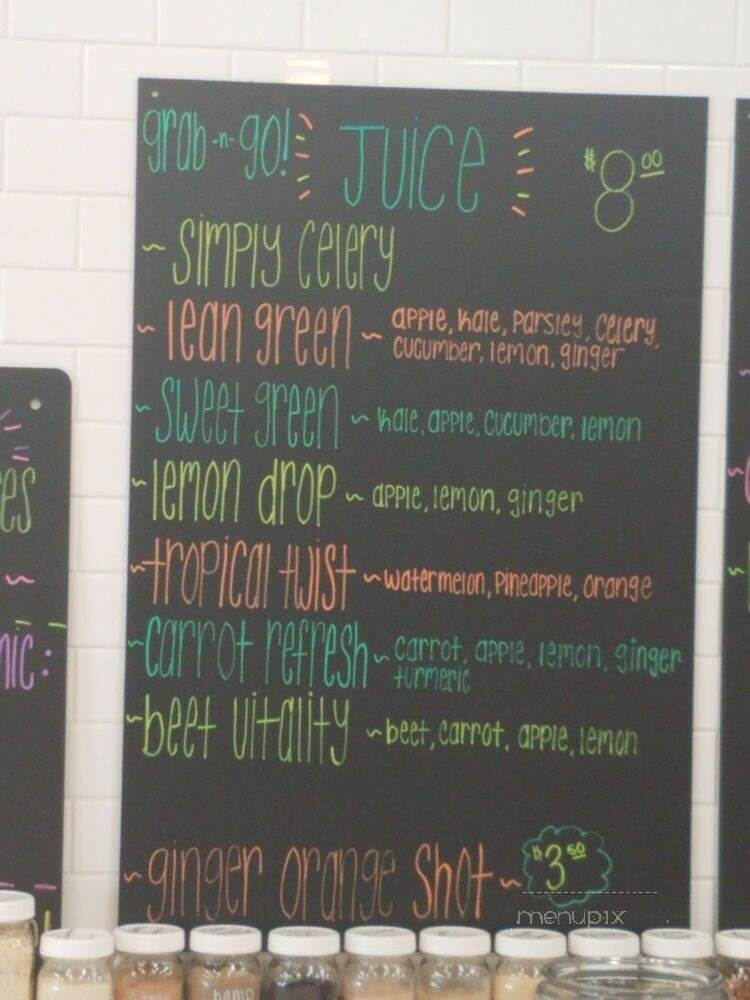 grab -n- go! JUICE $8.00
~ Simply Celery
~ lean green ~ apple, kale, parsley, celery,
cucumber, lemon, ginger
~ sweet green ~ kale, apple, cucumber, lemon
~ lemon drop ~ apple, lemon, ginger
~ tropical twist ~ watermelon, pineapple, orange
~ carrot refresh ~ carrot, apple, lemon, ginger
turmeric
~ beet vitality ~ beet, carrot, apple, lemon
~ ginger orange shot ~ $3.50
es
nic:
hemp
menupix